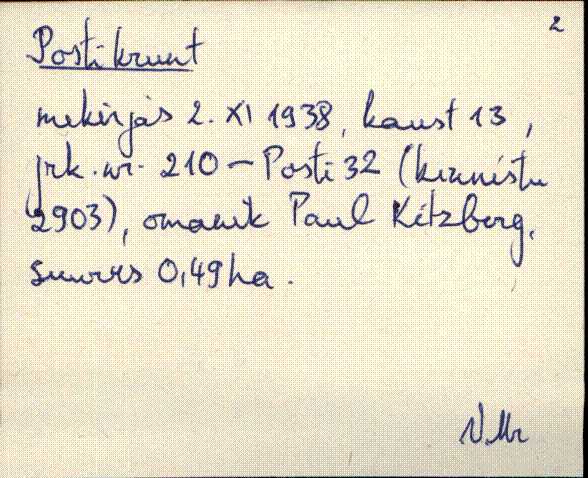 2
Posti krunt
mükirjas 2. XI 1938, kaust 13,
jrk. nr. 210 – Posti 32 (kinnistu
2903), omanik Paul Kitzberg,
suurus 0,49 ha.